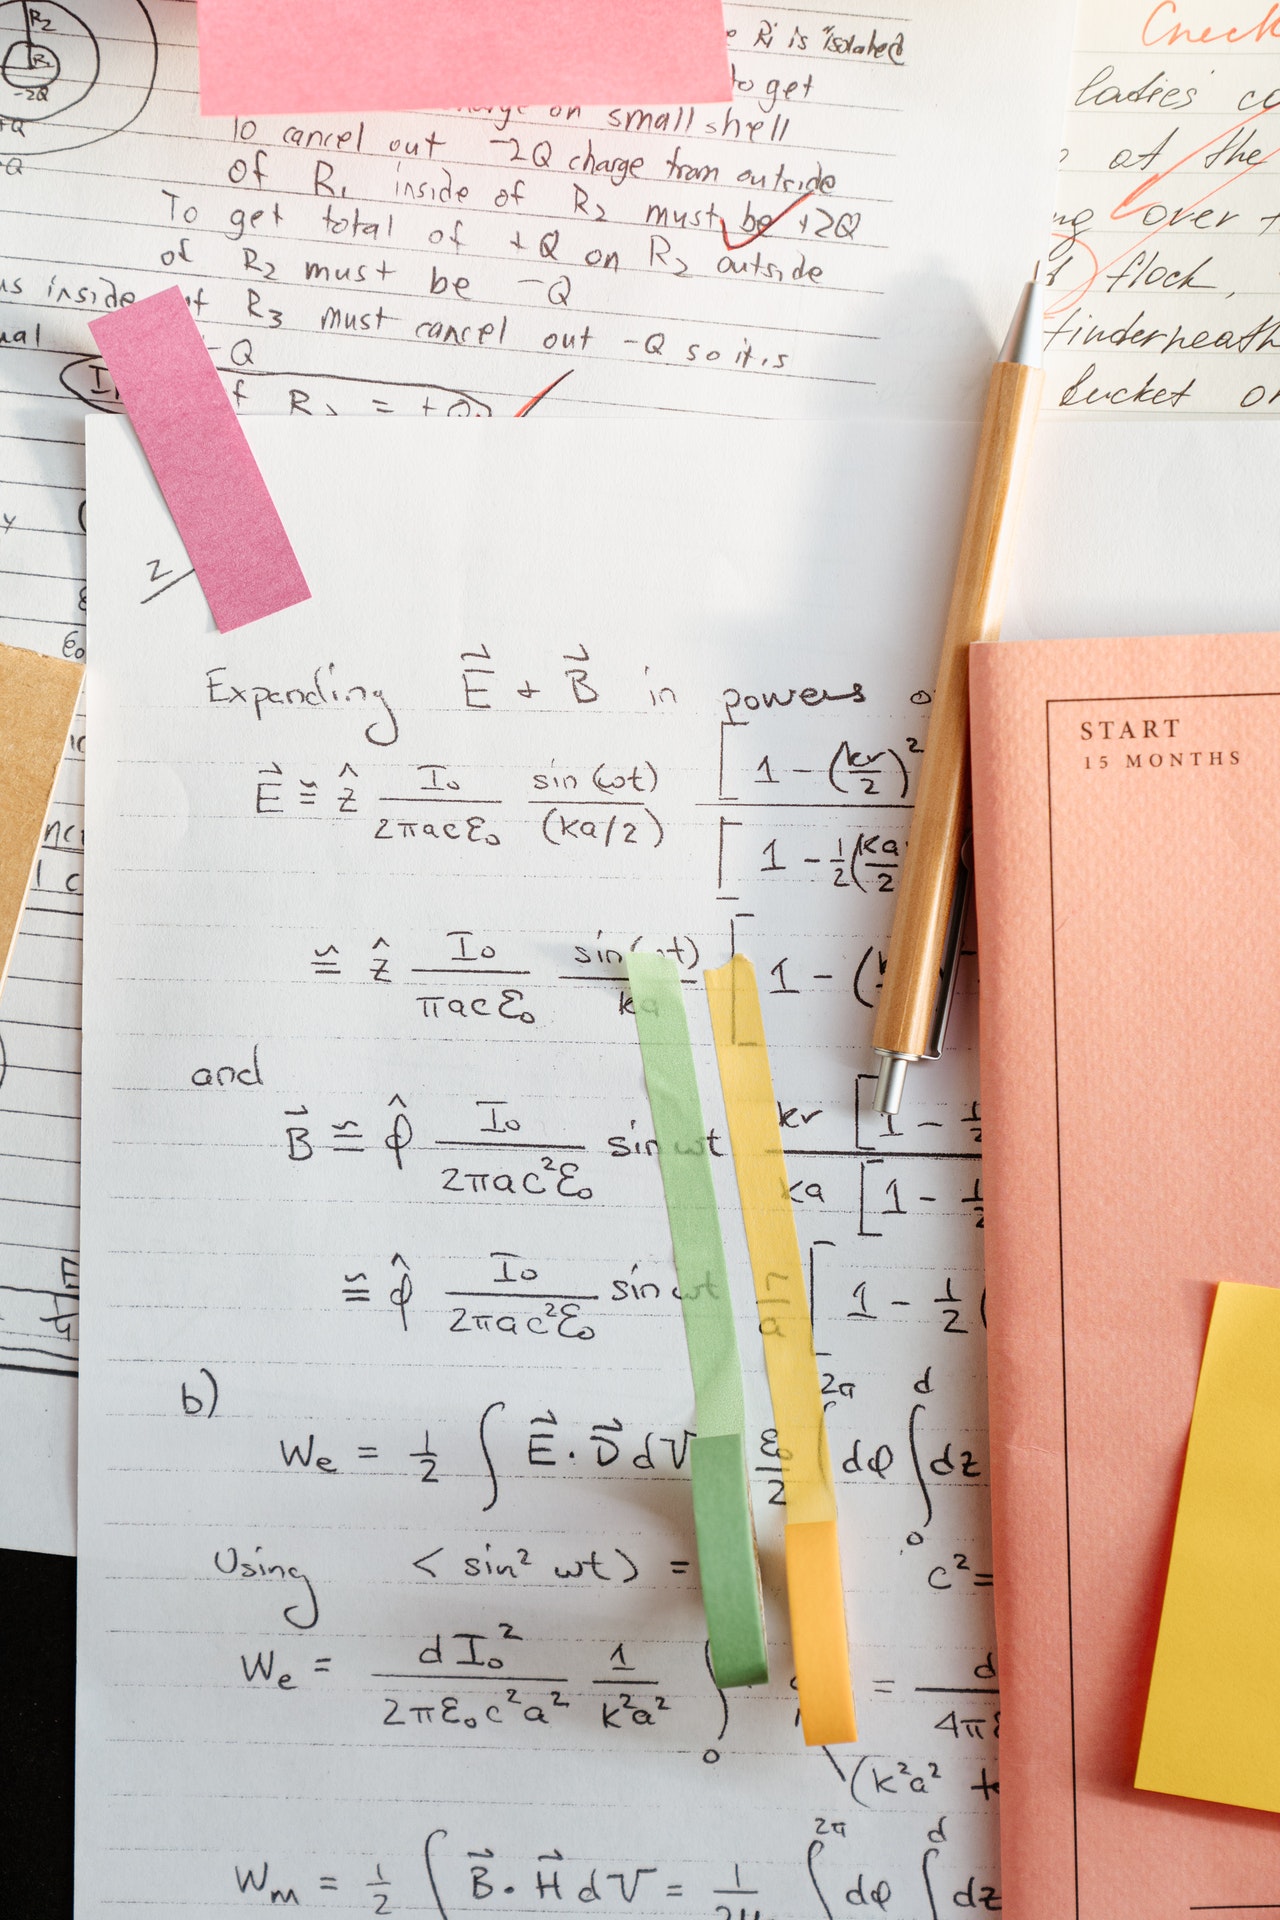 R₂
R₁
-2Q
+Q
-Q
R₁ is isolated
to get
on small shell
To cancel out -2Q charge from outside
of R₁ inside of R₂ must be +2Q
To get total of +Q on R₂ outside
of R₂ must be -Q
inside of R₃ must cancel out -Q so it is
-Q
R₃ = +Q
Check
ladies
at the
over
flock,
bucket
2
Expanding E⃗ + B⃗ in powers
E⃗ ≅ ẑ I₀/(2πacε₀) sin(ωt)/(ka/2) [1 - (kr/2)² / [1 - ½(ka/2
≅ ẑ I₀/(πacε₀) sin(ωt)/ka [1 - (
and
B⃗ ≅ φ̂ I₀/(2πac²ε₀) sin ωt kr [1 - ½ / ka [1 - ½
≅ φ̂ I₀/(2πac²ε₀) sin ωt r/a [1 - ½ (
b)
We = ½ ∫ E⃗ · D⃗ dV ε₀/2 ∫^2π dφ ∫₀^d dz
Using < sin² ωt > = c² =
We = dI₀²/(2πε₀c²a²) 1/(k²a²) ∫₀ = d/(4π
(k²a²
Wm = ½ ∫ B⃗ · H⃗ dV = 1/2μ ∫^2π dφ ∫^d dz
START
15 MONTHS